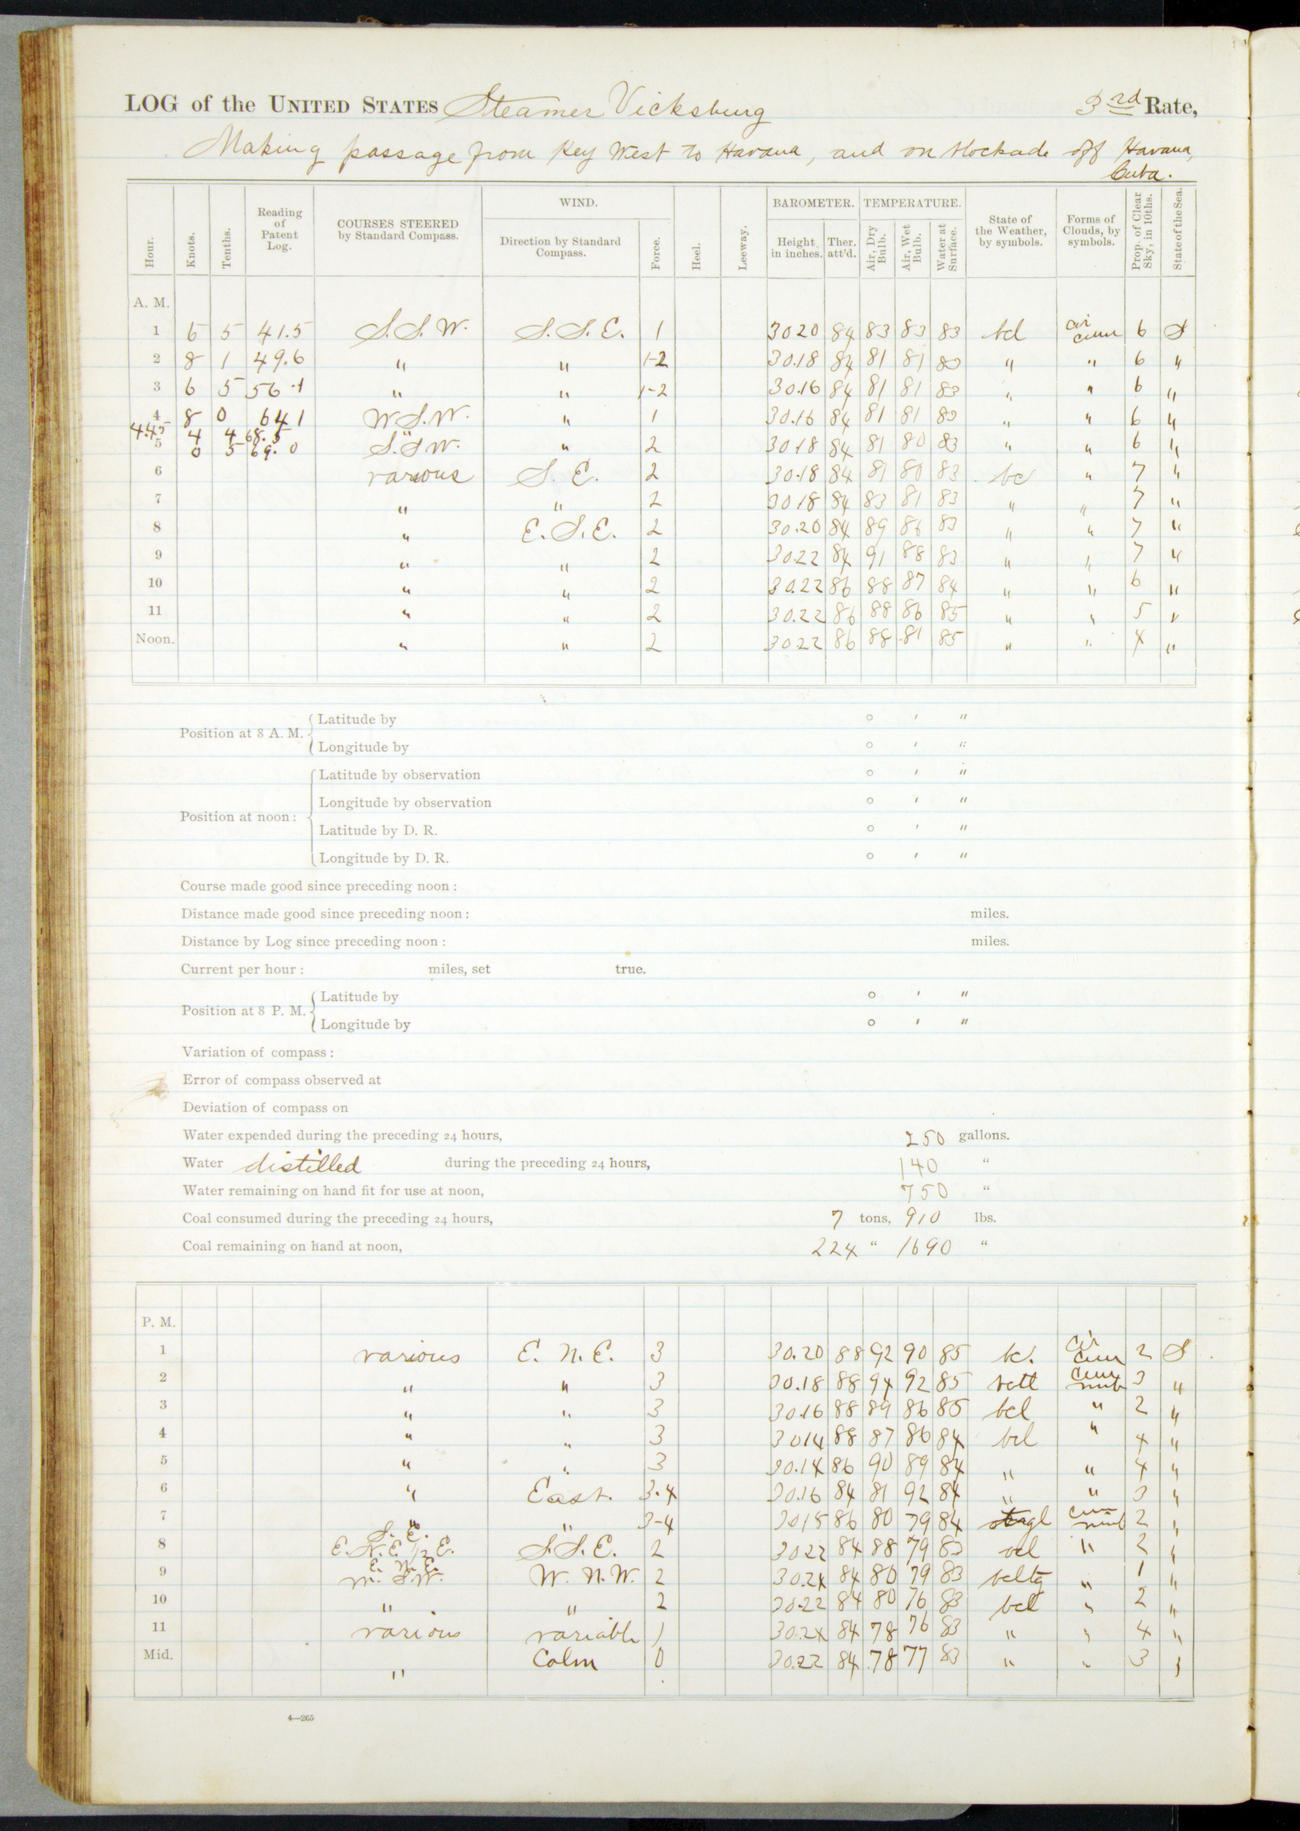 LOG of the UNITED STATES Steamer Vicksburg 3rd Rate,
Making passage from Key West to Havana, and on blockade off Havana,
Cuba.
Hour. Knots. Tenths. Reading of Patent Log. COURSES STEERED by Standard Compass. WIND. Direction by Standard Compass. Force. Heel. Leeway. BAROMETER. Height in inches. Ther. att'd. TEMPERATURE. Air, Dry Bulb. Air, Wet Bulb. Water at Surface. State of the Weather, by symbols. Forms of Clouds, by symbols. Prop. of Clear Sky, in 10ths. State of the Sea.
A. M.
1 6 5 41.5 S.S.W. S.S.E. 1 30.20 84 83 83 83 bcl cir cum 6 S
2 8 1 49.6 " " 1-2 30.18 84 81 81 83 " " 6 "
3 6 5 56.1 " " 1-2 30.16 84 81 81 83 " " 6 "
4 8 0 64.1 W.S.W. " 1 30.16 84 81 81 83 " " 6 "
4.45 4 4 68.5 "
5 0 5 69.0 S.S.W. " 2 30.18 84 81 80 83 " " 6 "
6 various S.E. 2 30.18 84 81 80 83 bc " 7 "
7 " " 2 30.18 84 83 81 83 " " 7 "
8 " E.S.E. 2 30.20 84 89 86 83 " " 7 "
9 " " 2 30.22 84 91 88 83 " " 7 "
10 " " 2 30.22 86 88 87 84 " " 6 "
11 " " 2 30.22 86 88 86 85 " " 5 "
Noon. " " 2 30.22 86 88 81 85 " " 4 "
Position at 8 A. M. Latitude by ° ' "
Longitude by ° ' "
Position at noon: Latitude by observation ° ' "
Longitude by observation ° ' "
Latitude by D. R. ° ' "
Longitude by D. R. ° ' "
Course made good since preceding noon:
Distance made good since preceding noon: miles.
Distance by Log since preceding noon: miles.
Current per hour: miles, set true.
Position at 8 P. M. Latitude by ° ' "
Longitude by ° ' "
Variation of compass:
Error of compass observed at
Deviation of compass on
Water expended during the preceding 24 hours, 250 gallons.
Water distilled during the preceding 24 hours, 140 "
Water remaining on hand fit for use at noon, 750 "
Coal consumed during the preceding 24 hours, 7 tons, 910 lbs.
Coal remaining on hand at noon, 224 " 1690 "
P. M.
1 various E.N.E. 3 30.20 88 92 90 85 bc. cir cum 2 S
2 " " 3 30.18 88 94 92 85 cum nimb 3 "
3 " " 3 30.16 88 89 86 85 bcl " 2 "
4 " " 3 30.14 88 87 86 84 bcl " 4 "
5 " " 3 30.14 86 90 89 84 " " 4 "
6 " East. 3-4 30.16 84 81 92 84 " " 3 "
7 " " 3-4 30.15 86 80 79 84 cum nimb 2 "
8 S.E. S.S.E. 2 30.22 84 88 79 83 " 2 "
9 W.N.W. 2 30.24 84 80 79 83 bcltq " 1 "
10 " " 2 30.22 84 80 76 83 bcl " 2 "
11 various variable 1 30.24 84 78 76 83 " " 4 "
Mid. " Calm 0 30.22 84 78 77 83 " " 3 "
4—265